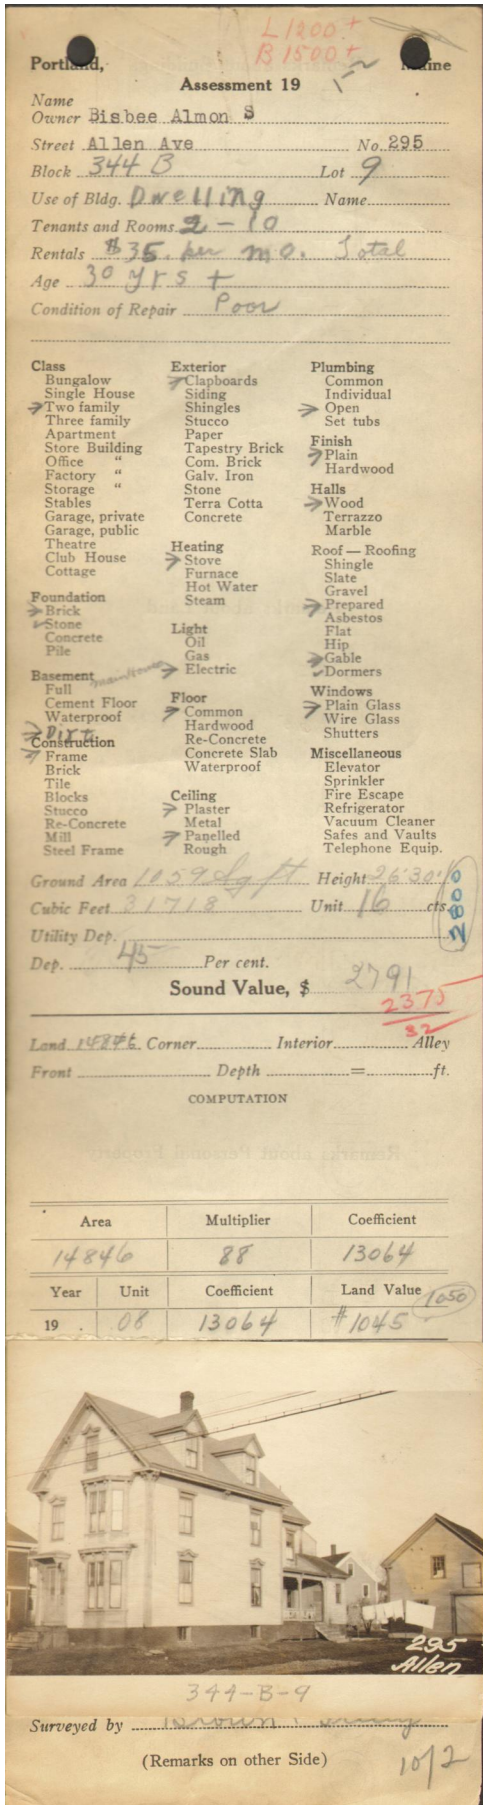 L 1200 +
B 1500 +
Portland, Maine
1-2
Assessment 19
Name
Owner Bisbee Almon S
Street Allen Ave No. 295
Block 344 B Lot 9
Use of Bldg. Dwelling Name
Tenants and Rooms 2-10
Rentals $35. per mo. Total
Age 30 yrs +
Condition of Repair Poor
Class
Bungalow
Single House
Two family
Three family
Apartment
Store Building
Office "
Factory "
Storage "
Stables
Garage, private
Garage, public
Theatre
Club House
Cottage
Foundation
Brick
Stone
Concrete
Pile
Basement
Full
Cement Floor
Waterproof
Dirt
Construction
Frame
Brick
Tile
Blocks
Stucco
Re-Concrete
Mill
Steel Frame
Exterior
Clapboards
Siding
Shingles
Stucco
Paper
Tapestry Brick
Com. Brick
Galv. Iron
Stone
Terra Cotta
Concrete
Heating
Stove
Furnace
Hot Water
Steam
Light
Oil
Gas
Electric
Floor
Common
Hardwood
Re-Concrete
Concrete Slab
Waterproof
Ceiling
Plaster
Metal
Panelled
Rough
Plumbing
Common
Individual
Open
Set tubs
Finish
Plain
Hardwood
Halls
Wood
Terrazzo
Marble
Roof — Roofing
Shingle
Slate
Gravel
Prepared
Asbestos
Flat
Hip
Gable
Dormers
Windows
Plain Glass
Wire Glass
Shutters
Miscellaneous
Elevator
Sprinkler
Fire Escape
Refrigerator
Vacuum Cleaner
Safes and Vaults
Telephone Equip.
Ground Area 1059 Sq ft Height 26'30'
Cubic Feet 31718 Unit 16 cts.
2800
Utility Dep.
Dep. 45 Per cent.
Sound Value, $ 2791
2375
32
Land 14846 Corner Interior Alley
Front Depth = ft.
COMPUTATION
Area Multiplier Coefficient
14846 88 13064
Year Unit Coefficient Land Value 1050
19 08 13064 #1045
295
Allen
344-B-9
Surveyed by
(Remarks on other Side)
10/2